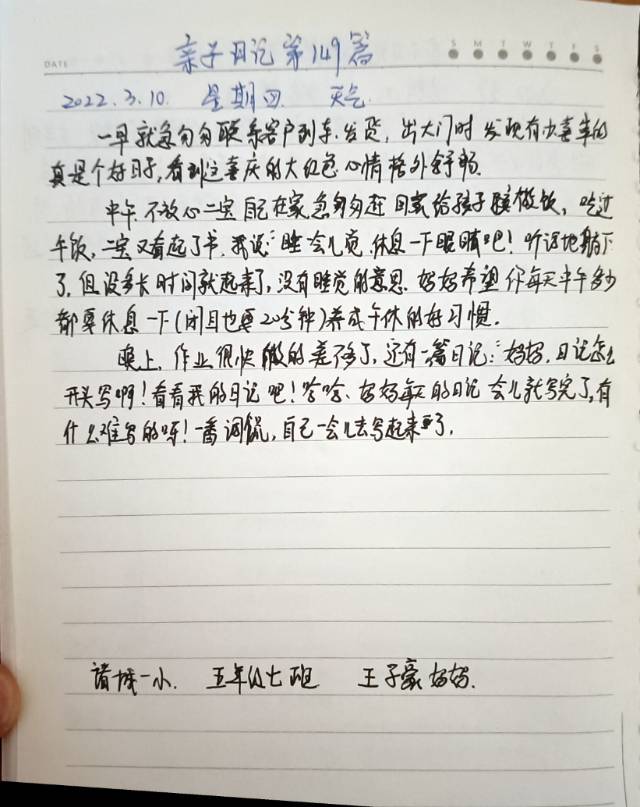 DATE
S M T W T F S
亲子日记第149篇
2022.3.10. 星期四 天气
一早就急匆匆联系客户到车.发货,出大门时发现有办喜事的
真是个好日子,看到这喜庆的大红色心情格外舒畅.
中午不放心二宝自己在家急匆匆赶回家给孩子做饭,吃过
午饭,二宝又看起了书.我说:"睡会儿觉.休息一下眼睛吧!听话地躺下
了.但没多长时间就起来了,没有睡觉的意思.妈妈希望你每天中午多少
都要休息一下(闭目也要20分钟)养成午休的好习惯.
晚上,作业很快做的差不多了,还有一篇日记:"妈妈,日记怎么
开头写啊!看看我的日记吧!哈哈、妈妈每天的日记会儿就写完了,有
什么难写的呀!一番调侃,自己一会儿去写起来了.
诸城一小. 五年级七班 王子豪妈妈.